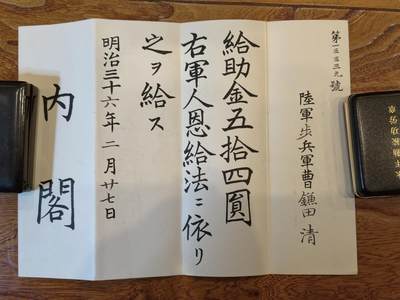 第一五三九號
陸軍歩兵軍曹鎌田清
給助金五拾四圓
右軍人恩給法ニ依リ
之ヲ給ス
明治三十六年二月廿七日
内閣